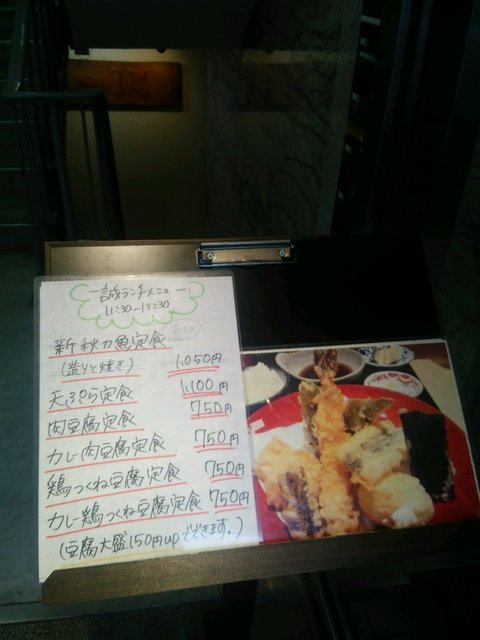 誠ランチメニュー
11:30〜13:30
新秋刀魚定食
(造りと焼き) 1,050円
天ぷら定食 1,100円
肉豆腐定食 750円
カレー肉豆腐定食 750円
鶏つくね豆腐定食 750円
カレー鶏つくね豆腐定食 750円
(豆腐大盛150円upでできます。)